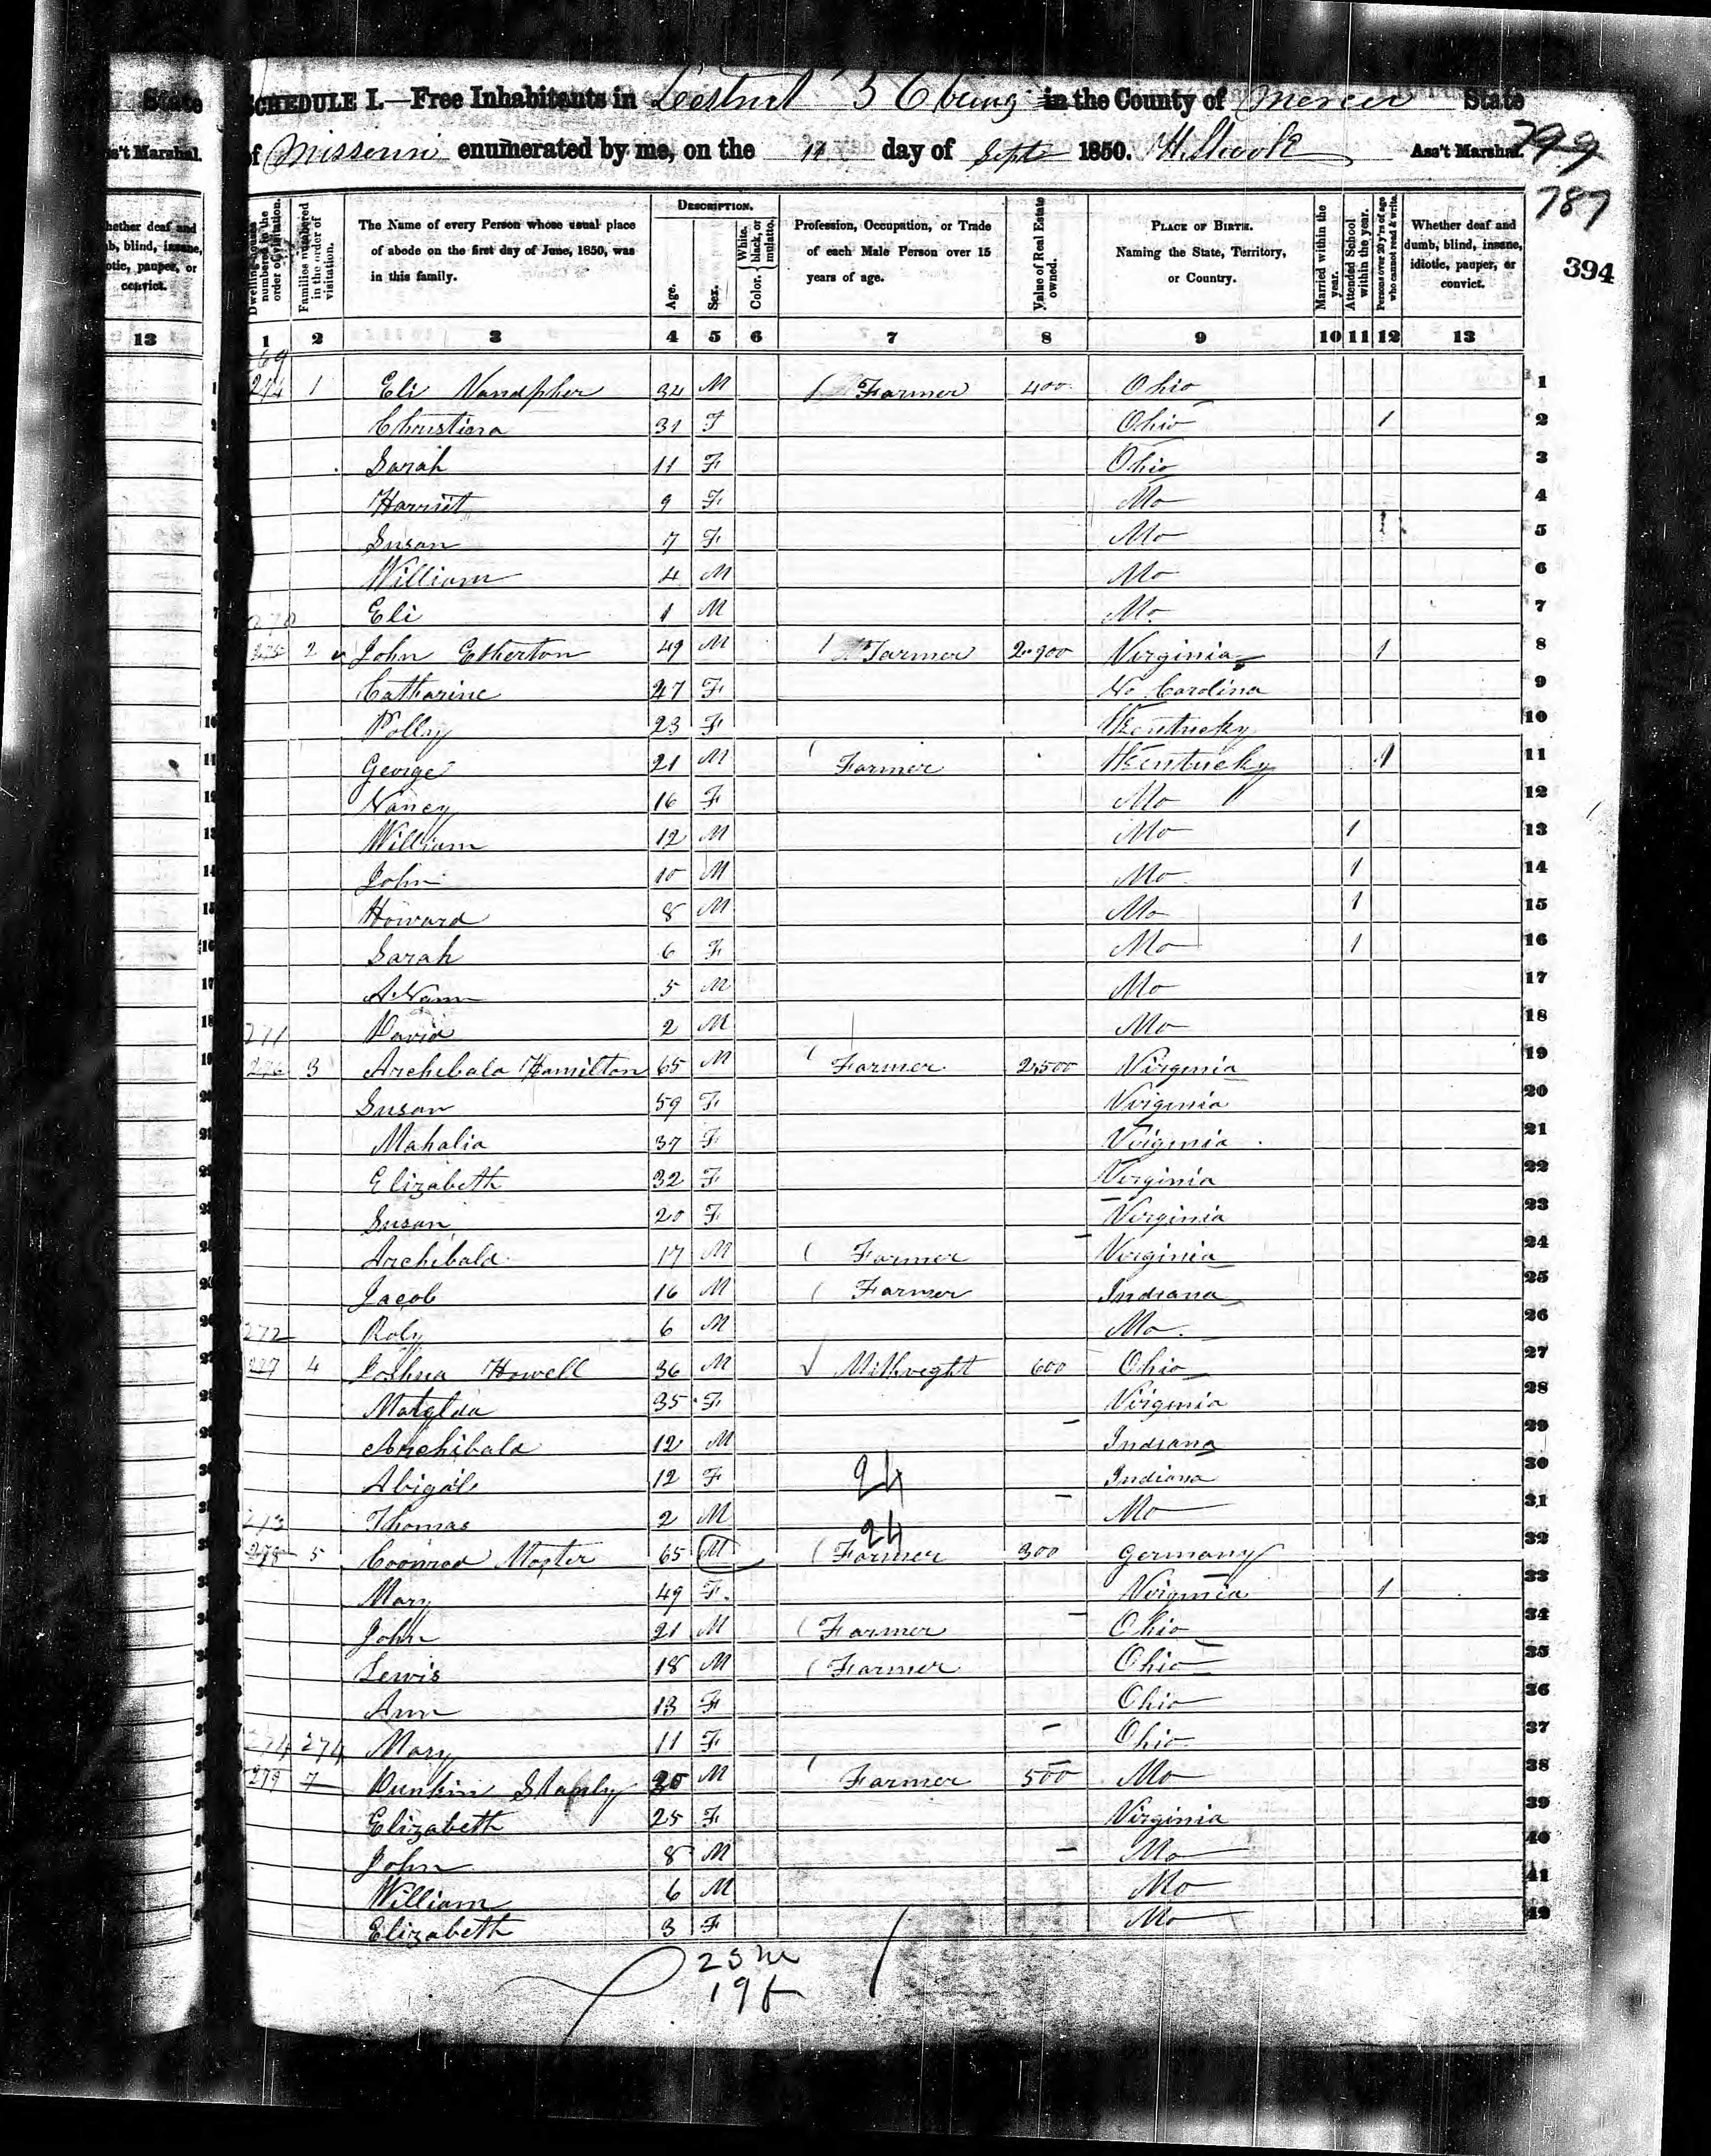 State
SCHEDULE I.—Free Inhabitants in District 56 being in the County of Mercer State
ss't Marshal.
of Missouri enumerated by me, on the 14 day of Sept 1850. Ass't Marshal.
799
787
394
hether deaf and
mb, blind, insane,
otic, pauper, or
convict.
Dwelling-houses numbered in the order of visitation.
Families numbered in the order of visitation.
The Name of every Person whose usual place of abode on the first day of June, 1850, was in this family.
DESCRIPTION.
Age.
Sex.
Color. White, black, or mulatto.
Profession, Occupation, or Trade of each Male Person over 15 years of age.
Value of Real Estate owned.
PLACE OF BIRTH. Naming the State, Territory, or Country.
Married within the year.
Attended School within the year.
Persons over 20 y'rs of age who cannot read & write.
Whether deaf and dumb, blind, insane, idiotic, pauper, or convict.
13 1 2 3 4 5 6 7 8 9 10 11 12 13
269
1 274 1 Eli Vandpher 34 M Farmer 400 Ohio 1
Christina 31 F Ohio 1 2
Sarah 11 F Ohio 3
Harriet 9 F Mo 4
Susan 7 F Mo 1 5
William 4 M Mo 6
270 Eli 1 M Mo 7
275 2 John Etherton 49 M 1 Farmer 2000 Virginia 1 8
Catharine 47 F No Carolina 9
Polly 23 F Kentucky 10
George 21 M 1 Farmer Kentucky 1 11
Nancy 16 F Mo 12
William 12 M Mo 1 13
John 10 M Mo 1 14
Howard 8 M Mo 1 15
Sarah 6 F Mo 1 16
5 M Mo 17
271 David 2 M Mo 18
276 3 Archibald Hamilton 65 M Farmer 2,500 Virginia 19
Susan 59 F Virginia 20
Mahalia 37 F Virginia 21
Elizabeth 32 F Virginia 22
Susan 20 F Virginia 23
Archibald 17 M Farmer Virginia 24
Jacob 16 M Farmer Indiana 25
272 Roly 6 M Mo 26
277 4 Joshua Howell 36 M Millwright 600 Ohio 27
Matylda 35 F Virginia 28
Archibald 12 M Indiana 29
Abigail 12 F 24 Indiana 30
273 Thomas 2 M Mo 31
24
278 5 Coonrod Moster 65 M Farmer 300 Germany 32
Mary 49 F Virginia 1 33
John 21 M Farmer Ohio 34
Lewis 18 M Farmer Ohio 35
Ann 13 F Ohio 36
274 274 Mary 11 F Ohio 37
279 7 Dunkin Stanly 30 M Farmer 500 Mo 38
Elizabeth 25 F Virginia 39
John 8 M Mo 40
William 6 M Mo 41
Elizabeth 3 F Mo 42
23 m
19 f